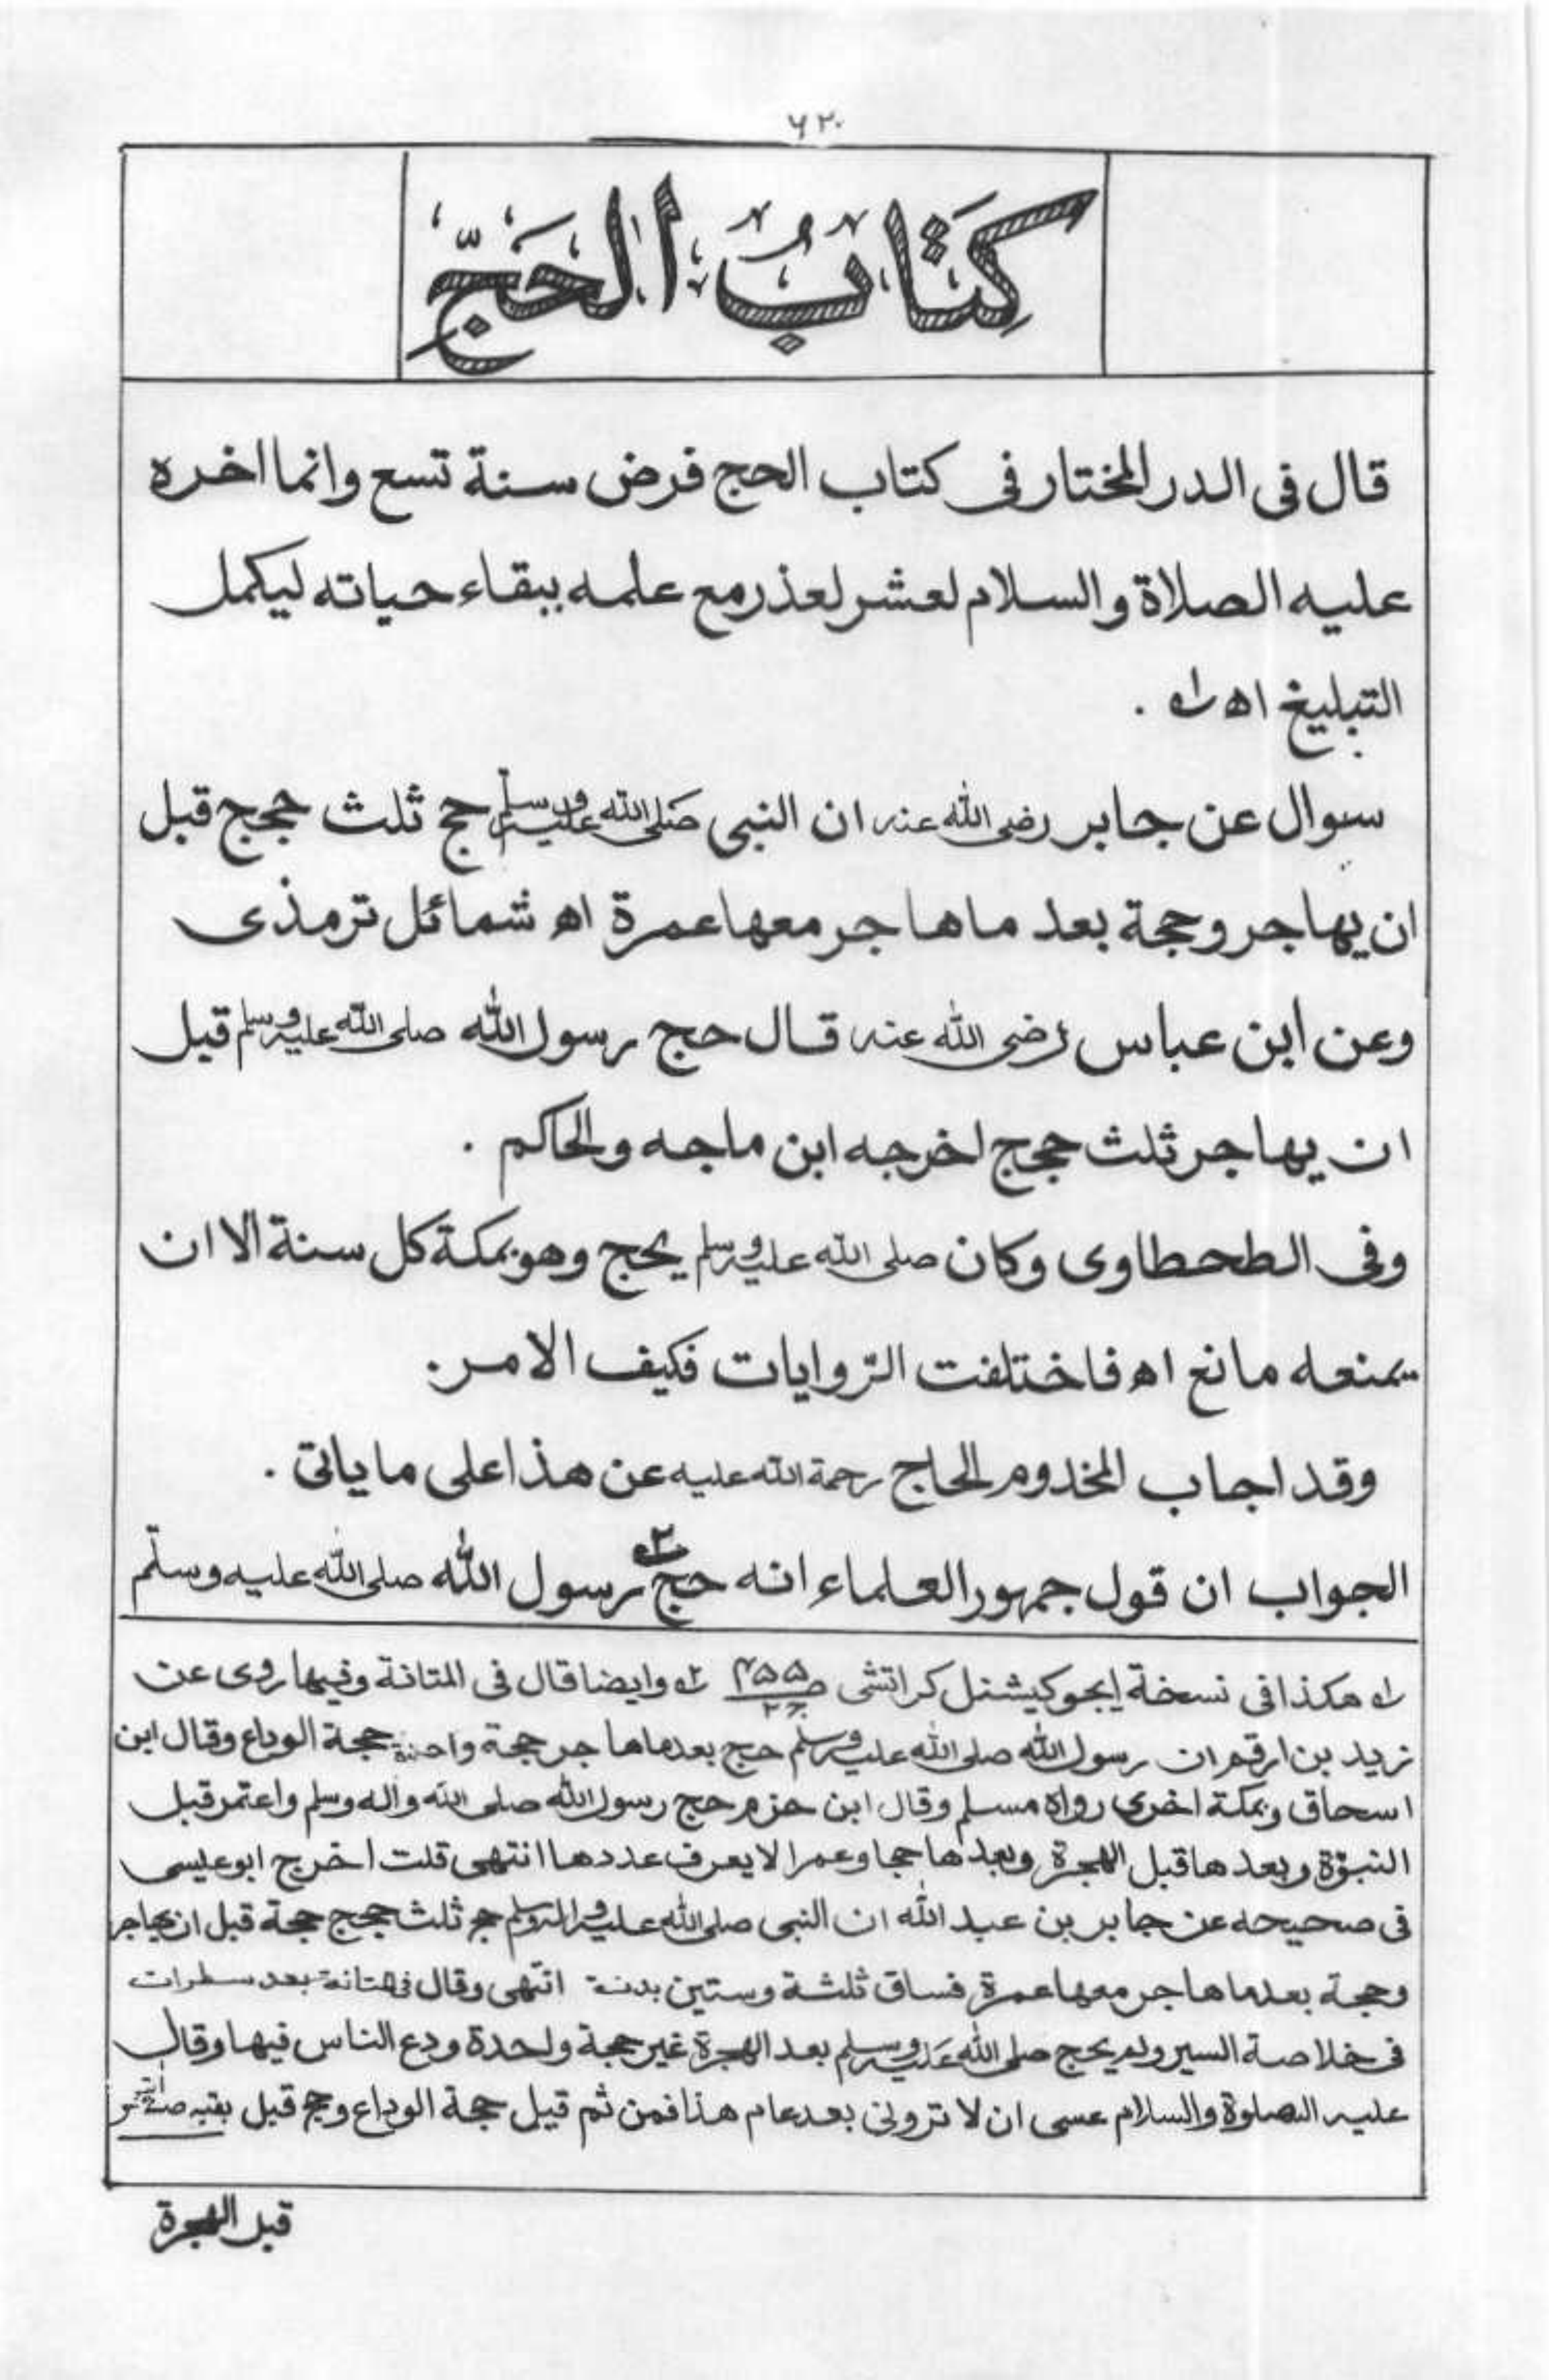 ۶۲۰
كِتَابُ الحَجّ
قال فى الدر المختار فى كتاب الحج فرض سنة تسع وانما اخره
عليه الصلاة والسلام لعشر لعذر مع علمه ببقاء حياته ليكمل
التبليغ اه ؂۱ .
سوال عن جابر رضى الله عنه ان النبى صَلى الله عليه وسلم حج ثلث حجج قبل
ان يهاجر وحجة بعد ما هاجر معها عمرة اه شمائل ترمذى
وعن ابن عباس رضى الله عنه قال حج رسول الله صلى الله عليه وسلم قبل
ان يهاجر ثلث حجج اخرجه ابن ماجه والحاكم .
وفى الطحطاوى وكان صلى الله عليه وسلم يحج وهو بمكة كل سنة الا ان
يمنعه مانع اه فاختلفت الرّوايات فكيف الامر .
وقد اجاب المخدوم الحاج رحمة الله عليه عن هذا على ما ياتى .
الجواب ان قول جمهور العلماء انه حج ؂۲ رسول الله صلى الله عليه وسلّم
؂۱ هكذا فى نسخة ايجوكيشنل كراتشى ص ۴۵۵ ج ۲ ؂۲ وايضا قال فى المتانة وفيها روى عن
زيد بن ارقم ان رسول الله صلى الله عليه وسلم حج بعد ما هاجر حجة واحدة حجة الوداع وقال ابن
اسحاق وبمكة اخرى رواه مسلم وقال ابن حزم حج رسول الله صلى الله واله وسلم واعتمر قبل
النبوّة وبعدها قبل الهجرة وبعدها حجا وعمرا لا يعرف عددها انتهى قلت اخرج ابو عيسى
فى صحيحه عن جابر بن عبد الله ان النبى صلى الله عليه واله وسلم حج ثلث حجج حجة قبل ان يهاجر
وحجة بعد ما هاجر معها عمرة فساق ثلثة وستين بدنة انتهى وقال فى المتانة بعد سطرات
فى خلاصة السير ولم يحج صلى الله عَليه وسلم بعد الهجرة غير حجة واحدة ودع الناس فيها وقال
عليه الصلوة والسلام عسى ان لا ترونى بعد عام هذا فمن ثم قيل حجة الوداع وحج قبل بقيه
قبل الهجرة